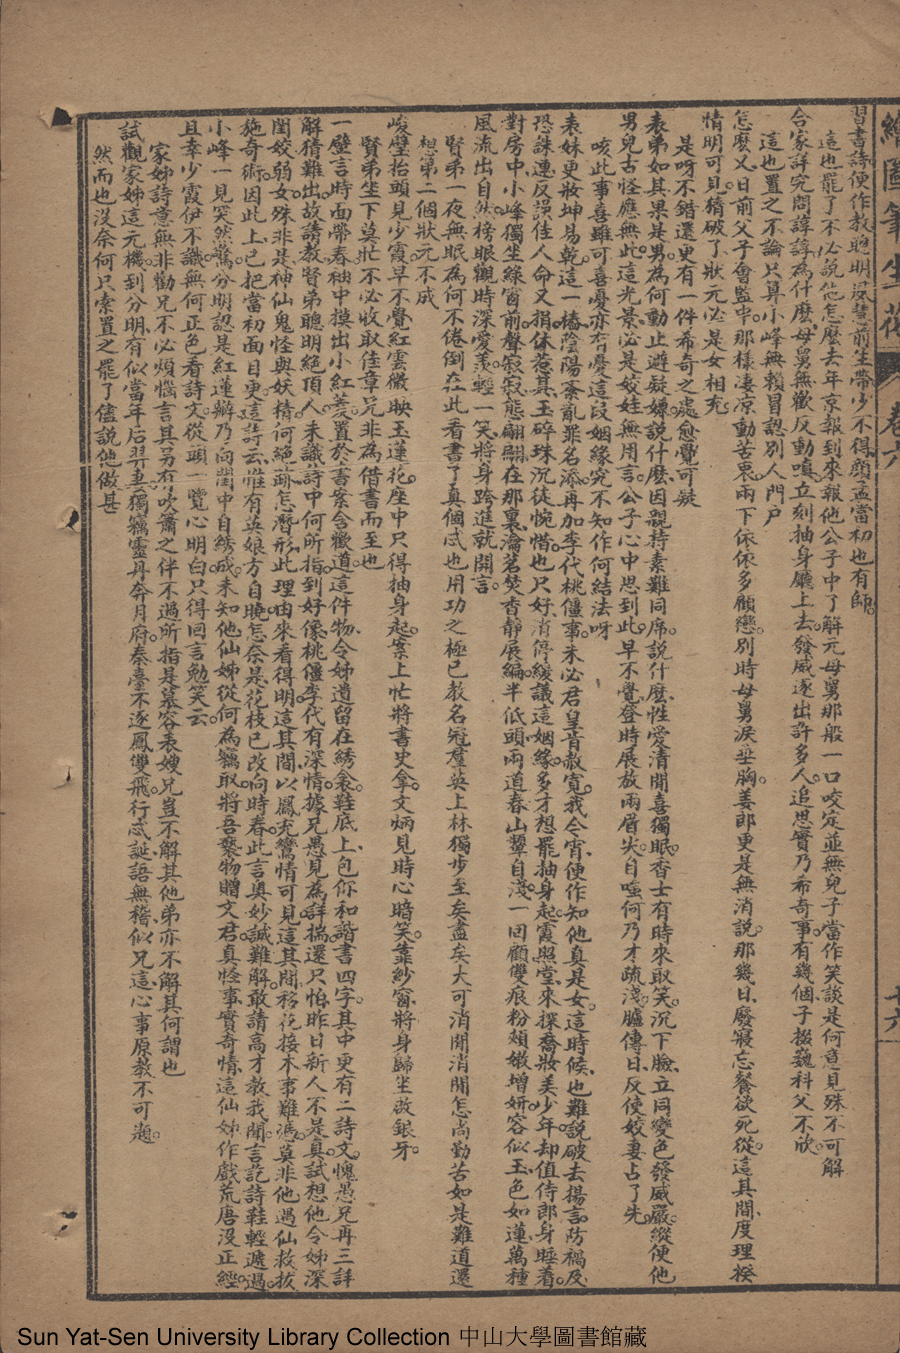 繪圖筆生花 卷六 十六
習書詩便作教聰明夙慧前生帶少不得顏孟當初也有師
這也罷了不必說他怎麼去年京報到來報他公子中了解元母舅那般一口咬定並無兒子當作笑談是何意見殊不可解
合家詳究問諄諄為什麼母舅無歡反動嗔立刻抽身廳上去發威逐出許多人追思實乃希奇事有幾個子掇巍科父不欣
這也置之不論只算小峰無賴冒認別人門戶
怎麼又日前父子會監中那樣淒涼動苦衷兩下依依多顧戀別時母舅淚垂胸姜郎更是無消說那幾日廢寢忘餐欲死從這其間度理揆
情明可見猜破了狀元必是女相充
是呀不錯還更有一件希奇之處愈覺可疑
表弟如其果是男為何動止避疑嫌說什麼因親持素難同席說什麼性愛清閒喜獨眠香士有時來取笑沉下臉立同變色發威嚴縱使他
男兒古怪應無此這光景必是姣娃無用言公子心中思到此早不覺登時展放兩眉尖自嗤何乃才疏淺臚傳日反使姣妻占了先
咳此事喜雖可喜憂亦有憂這段姻緣究不知作何結法呀
表妹更妝坤易乾這一樁陰陽紊亂罪名添再加李代桃僵事未必君皇肯赦寬我今宵便作知他真是女這時候也難說破去揚言防禍及
恐誅連反誤佳人命又捐休惹其玉碎珠沉徒惋惜也只好消停緩議這姻緣多才想罷抽身起霞照堂來探喬妝美少年却值侍郎身睡着
對房中小峰獨坐綠窗前聲寂寂態翩翩在那裏瀹茗焚香靜展編半低頭兩道春山顰自淺一回顧雙痕粉頰嫩增妍容似玉色如蓮萬種
風流出自然榜眼觀時深愛羨輕一笑將身跨進就開言
賢弟一夜無眠為何不倦倒在此看書了真個忒也用功之極已教名冠羣英上林獨步至矣盡矣大可消閒消閒怎尚勤苦如是難道還
想第二個狀元不成
峻璧抬頭見少霞早不覺紅雲微映玉蓮花座中只得抽身起案上忙將書史拿文炳見時心暗笑靠紗窗將身歸坐啟銀牙
賢弟坐下莫忙不必收取佳章兄非為借書而至也
一壁言時面帶春袖中摸出小紅菱置於書案含歡道這件物令姊遺留在綉衾鞋底上包你和諧書四字其中更有二詩文愧愚兄再三詳
解猜難出故請教賢弟聰明絕頂人未識詩中何所指到好像桃僵李代有深情據兄愚見為詳揣還只怕昨日新人不是真試想他令姊深
閨姣弱女殊非是神仙鬼怪與妖精何絕跡怎潛形此理由來看得明這其間以鳳充鸞情可見這其間移花接木事難憑莫非他遇仙救拔
施奇術因此上已把當初面目更這詩云惟有英娘方自曉怎奈是花枝已改向時春此言奧妙誠難解敢請高才教我聞言訖詩鞋輕遞過
小峰一見突然驚分明認是紅蓮瓣乃向閨中自綉成未知他仙姊從何為竊取將吾褻物贈文君真怪事實奇情這仙姊作戲荒唐沒正經
且幸少霞伊不識無何正色看詩文從頭一覽心明白只得回言勉笑云
家姊詩意無非勸兄不必煩惱言其另有吹簫之伴不過所指是慕容表嫂兄豈不解其他弟亦不解其何謂也
試觀家姊這元機到分明有似當年后羿妻獨竊靈丹奔月府秦臺不逐鳳雙飛行忒誕語無稽似兄這心事原教不可題
然而也沒奈何只索置之罷了儘說他做甚
Sun Yat-Sen University Library Collection 中山大學圖書館藏